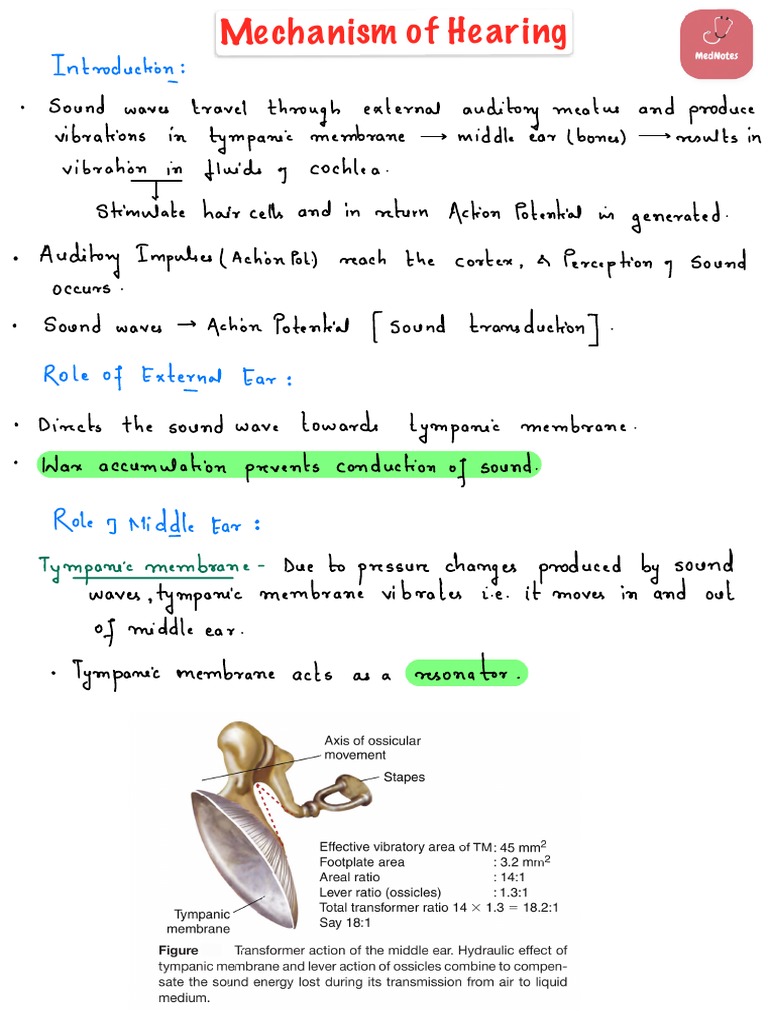 Mechanism of Hearing
MedNotes
Introduction:
• Sound waves travel through external auditory meatus and produce
vibrations in tympanic membrane → middle ear (bones) → results in
vibration in fluids of cochlea.
Stimulate hair cells and in return Action Potential is generated.
• Auditory Impulses (Action Pot.) reach the cortex, & Perception of Sound
occurs.
• Sound waves → Action Potential [Sound transduction].
Role of External Ear:
• Directs the sound wave towards tympanic membrane.
• Wax accumulation prevents conduction of sound.
Role of Middle Ear:
Tympanic membrane - Due to pressure changes produced by sound
waves, tympanic membrane vibrates i.e. it moves in and out
of middle ear.
• Tympanic membrane acts as a resonator.
Axis of ossicular
movement
Stapes
Effective vibratory area of TM : 45 mm²
Footplate area : 3.2 mm²
Areal ratio : 14:1
Lever ratio (ossicles) : 1.3:1
Total transformer ratio 14 × 1.3 = 18.2:1
Say 18:1
Tympanic
membrane
Figure Transformer action of the middle ear. Hydraulic effect of
tympanic membrane and lever action of ossicles combine to compen-
sate the sound energy lost during its transmission from air to liquid
medium.